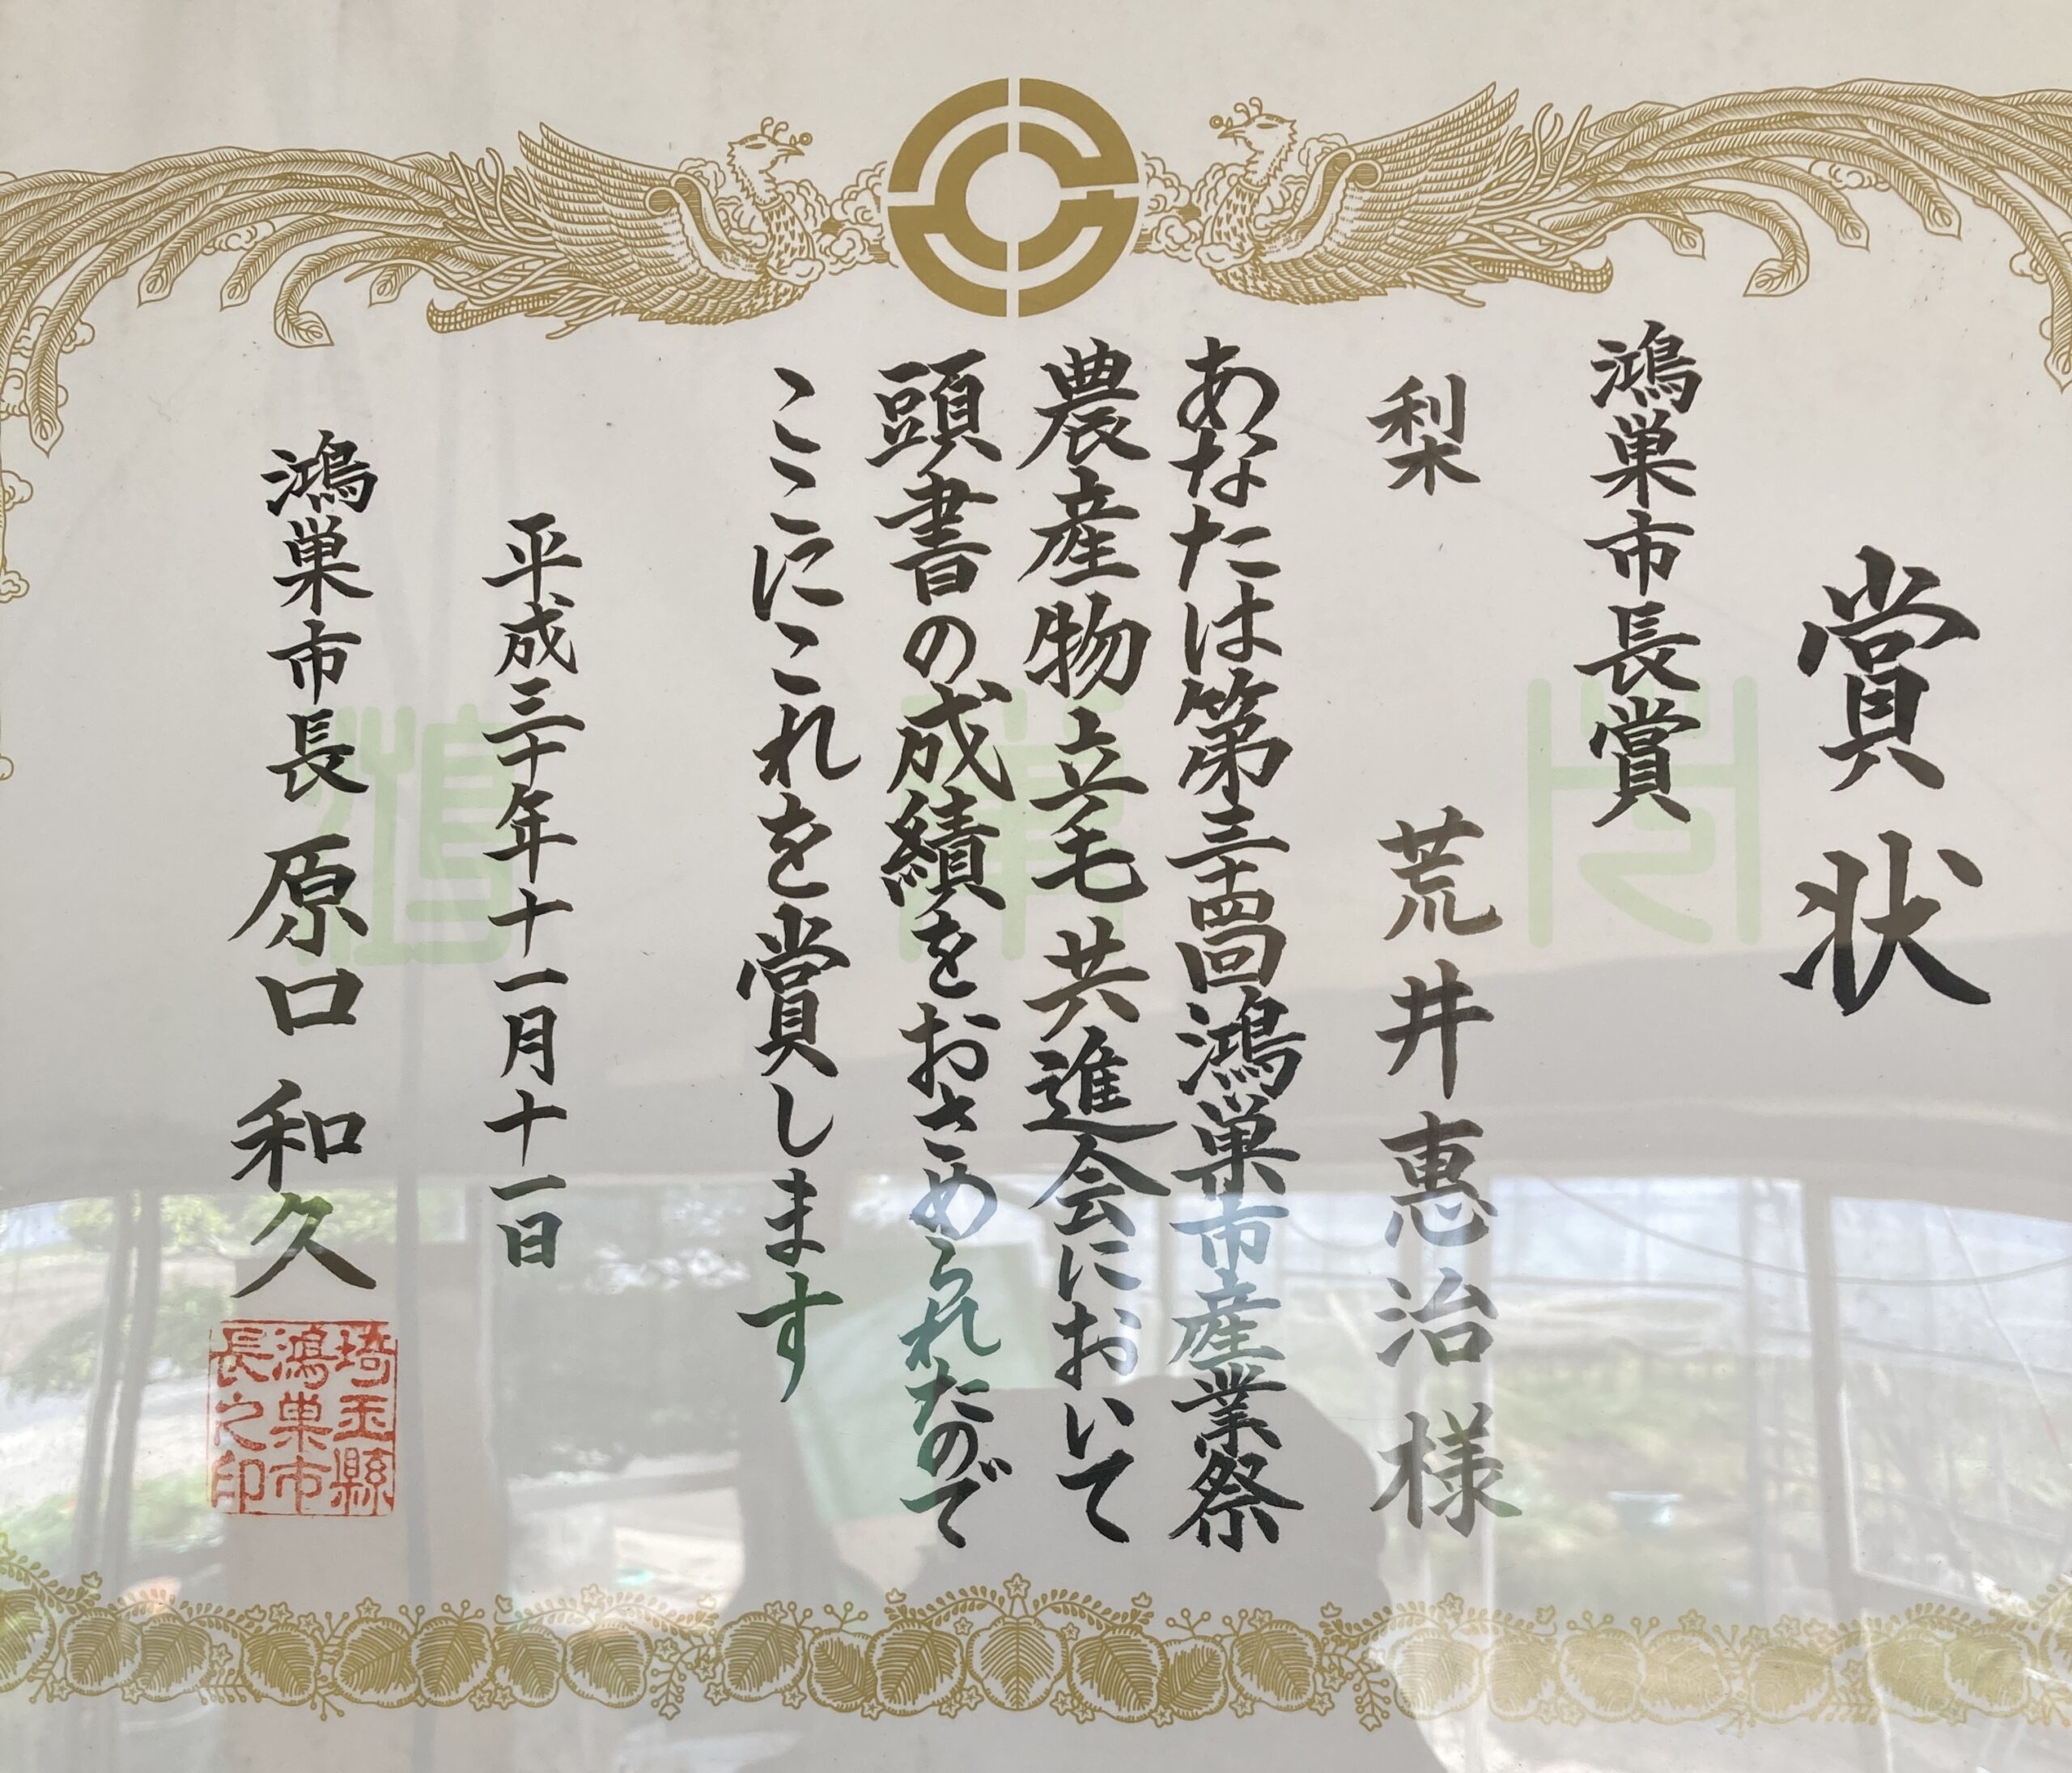 賞状
鴻巣市長賞
梨
荒井惠治様
あなたは第三十四回鴻巣市産業祭
農産物立毛共進会において
頭書の成績をおさめられたので
ここにこれを賞します
平成三十年十一月十一日
鴻巣市長 原口和久
埼玉縣
鴻巣市
長之印
鴻巣市